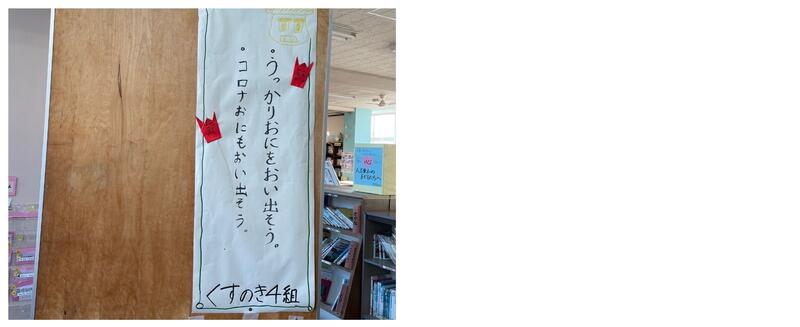 。うっかりおにをおい出そう。
。コロナおにもおい出そう。
くすのき4組